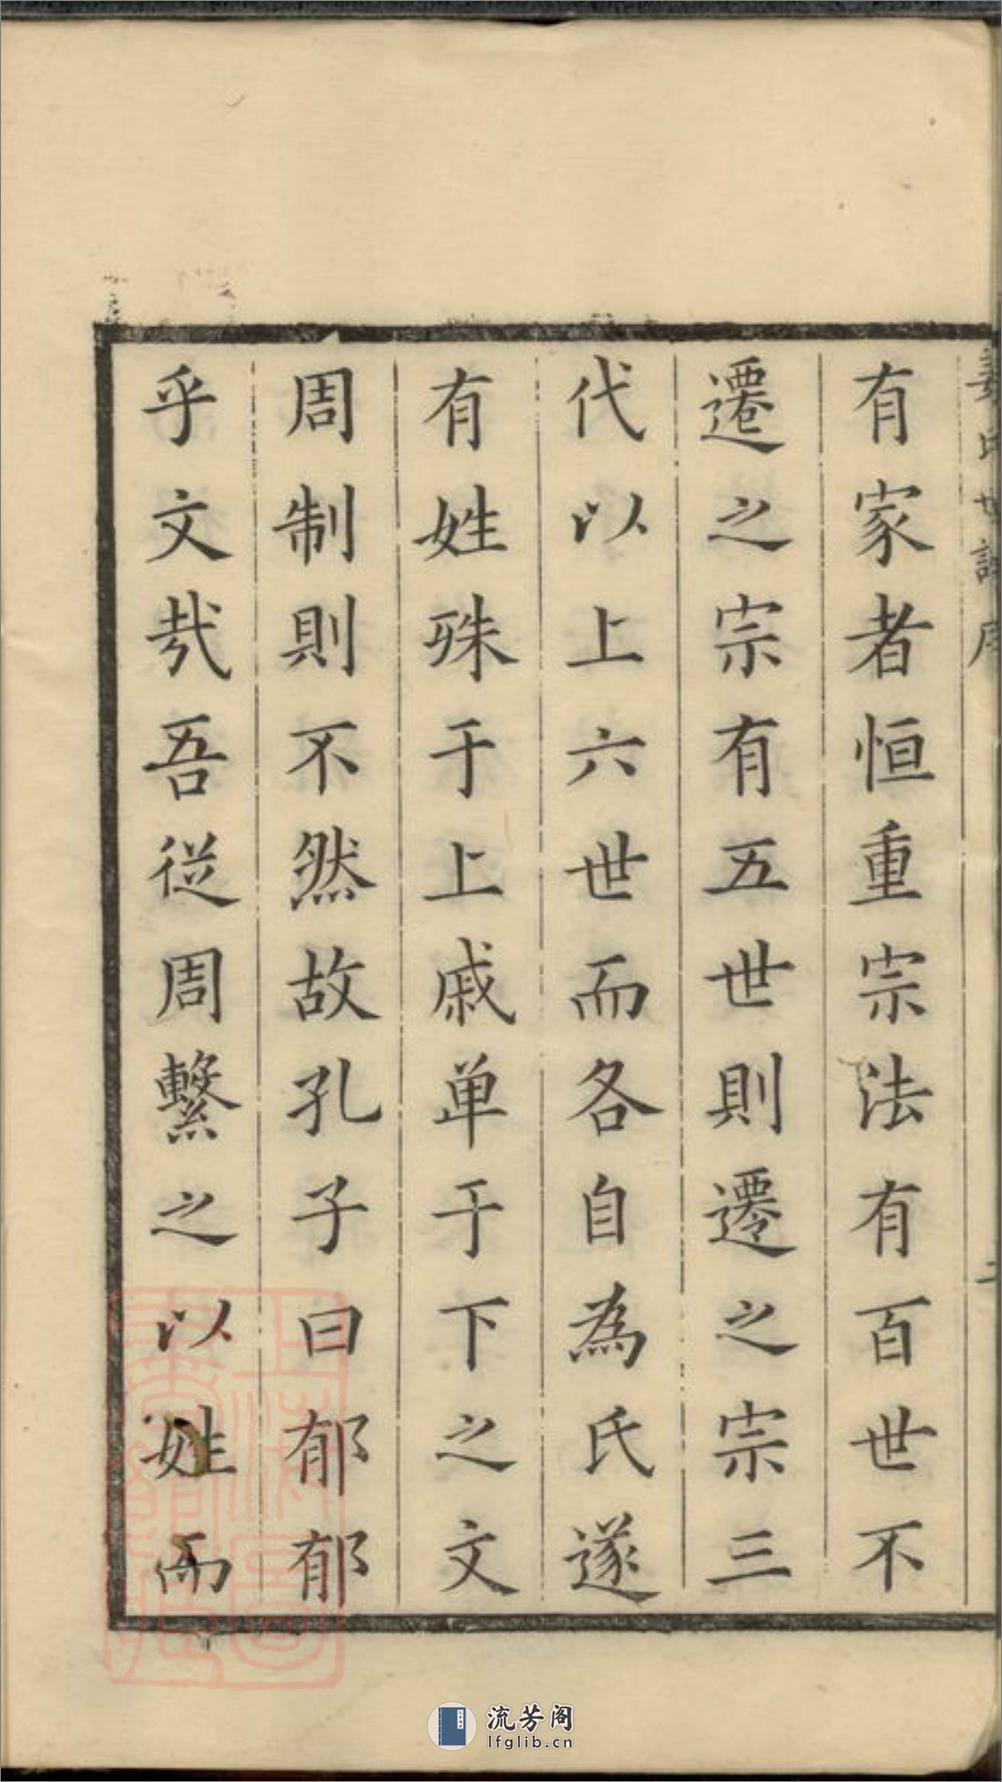 氏世譜序
二
有家者恒重宗法有百世不
遷之宗有五世則遷之宗三
代以上六世而各自為氏遂
有姓殊于上戚单于下之文
周制則不然故孔子曰郁郁
乎文㦲吾從周繫之以姓而
流芳阁
lfglib.cn